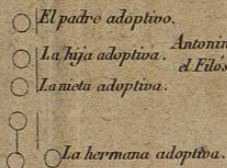 El padre adoptivo.
La hija adoptiva.
Antonin
el Filós
La nieta adoptiva.
La hermana adoptiva.